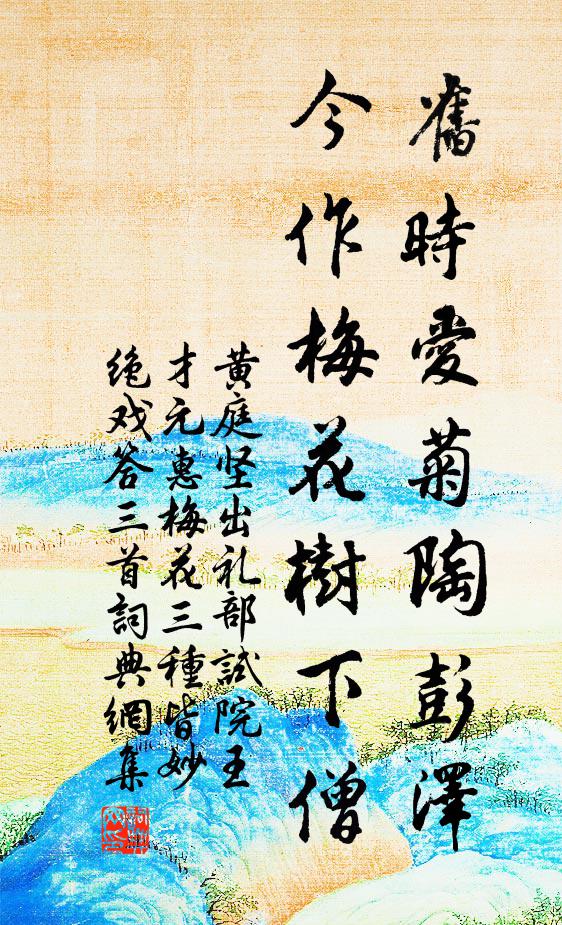 舊時愛菊陶彭澤
今作梅花樹下僧
黄庭坚出礼部試院王
才元惠梅花三種皆妙
绝戏答三首詞典網集